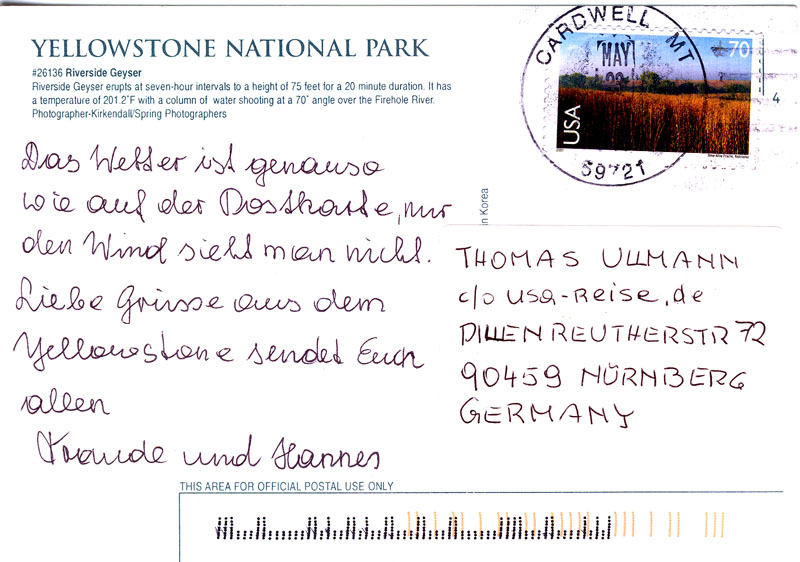 YELLOWSTONE NATIONAL PARK
#26136 Riverside Geyser
Riverside Geyser erupts at seven-hour intervals to a height of 75 feet for a 20 minute duration. It has
a temperature of 201.2°F with a column of water shooting at a 70° angle over the Firehole River.
Photographer-Kirkendall/Spring Photographers
CARDWELL MT
MAY
59721
70
USA
4
Das Wetter ist genauso
wie auf der Postkarte, nur
den Wind sieht man nicht.
Liebe Grüsse aus dem
Yellowstone sendet Euch
allen
Traude und Hannes
in Korea
THOMAS ULLMANN
c/o USA-REISE.de
DILLENREUTHERSTR 72
90459 NÜRNBERG
GERMANY
THIS AREA FOR OFFICIAL POSTAL USE ONLY